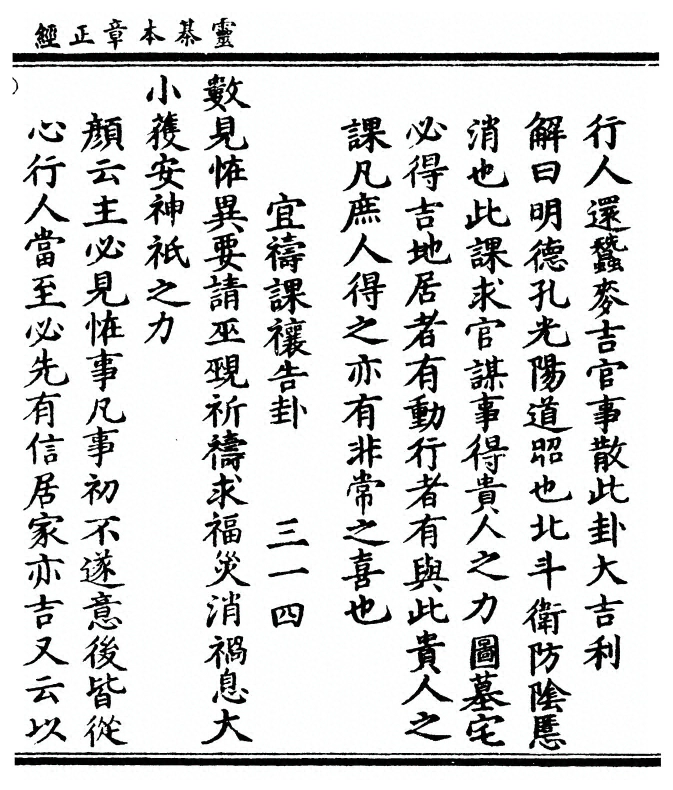 靈棊本章正經
行人還蠶麥吉官事散此卦大吉利
解曰明德孔光陽道昭也北斗衛防陰慝
消也此課求官謀事得貴人之力圖墓宅
必得吉地居者有動行者有與此貴人之
課凡庶人得之亦有非常之喜也
宜禱課禳告卦 三一四
數見恠異要請巫覡祈禱求福災消禍息大
小獲安神祇之力
顏云主必見恠事凡事初不遂意後皆從
心行人當至必先有信居家亦吉又云以